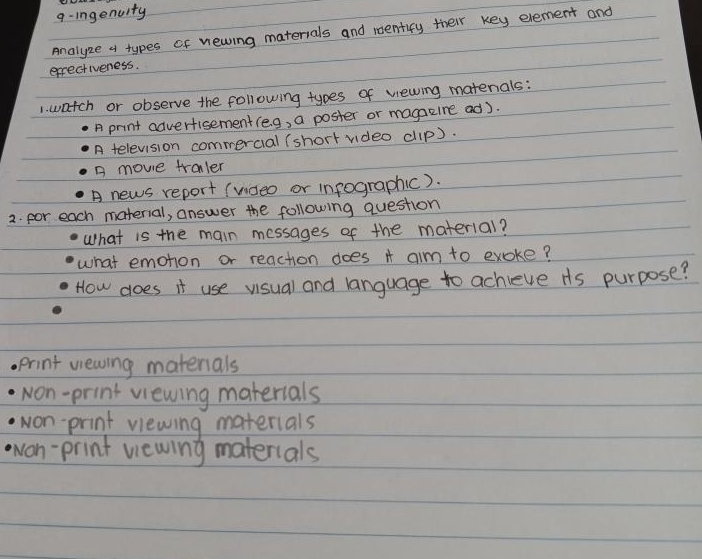 9-ingenuity
Analyze 4 types of viewing materials and identify their key element and
effectiveness.
1.watch or observe the following types of viewing materials:
• A print advertisement (e.g, a poster or magazine ad).
• A television commercial (short video clip).
• A movie trailer
• A news report (video or infographic).
2. for each material, answer the following question
• what is the main messages of the material?
• what emotion or reaction does it aim to evoke?
• How does it use visual and language to achieve its purpose?
•
• print viewing materials
• Non-print viewing materials
• Non-print viewing materials
• Non-print viewing materials